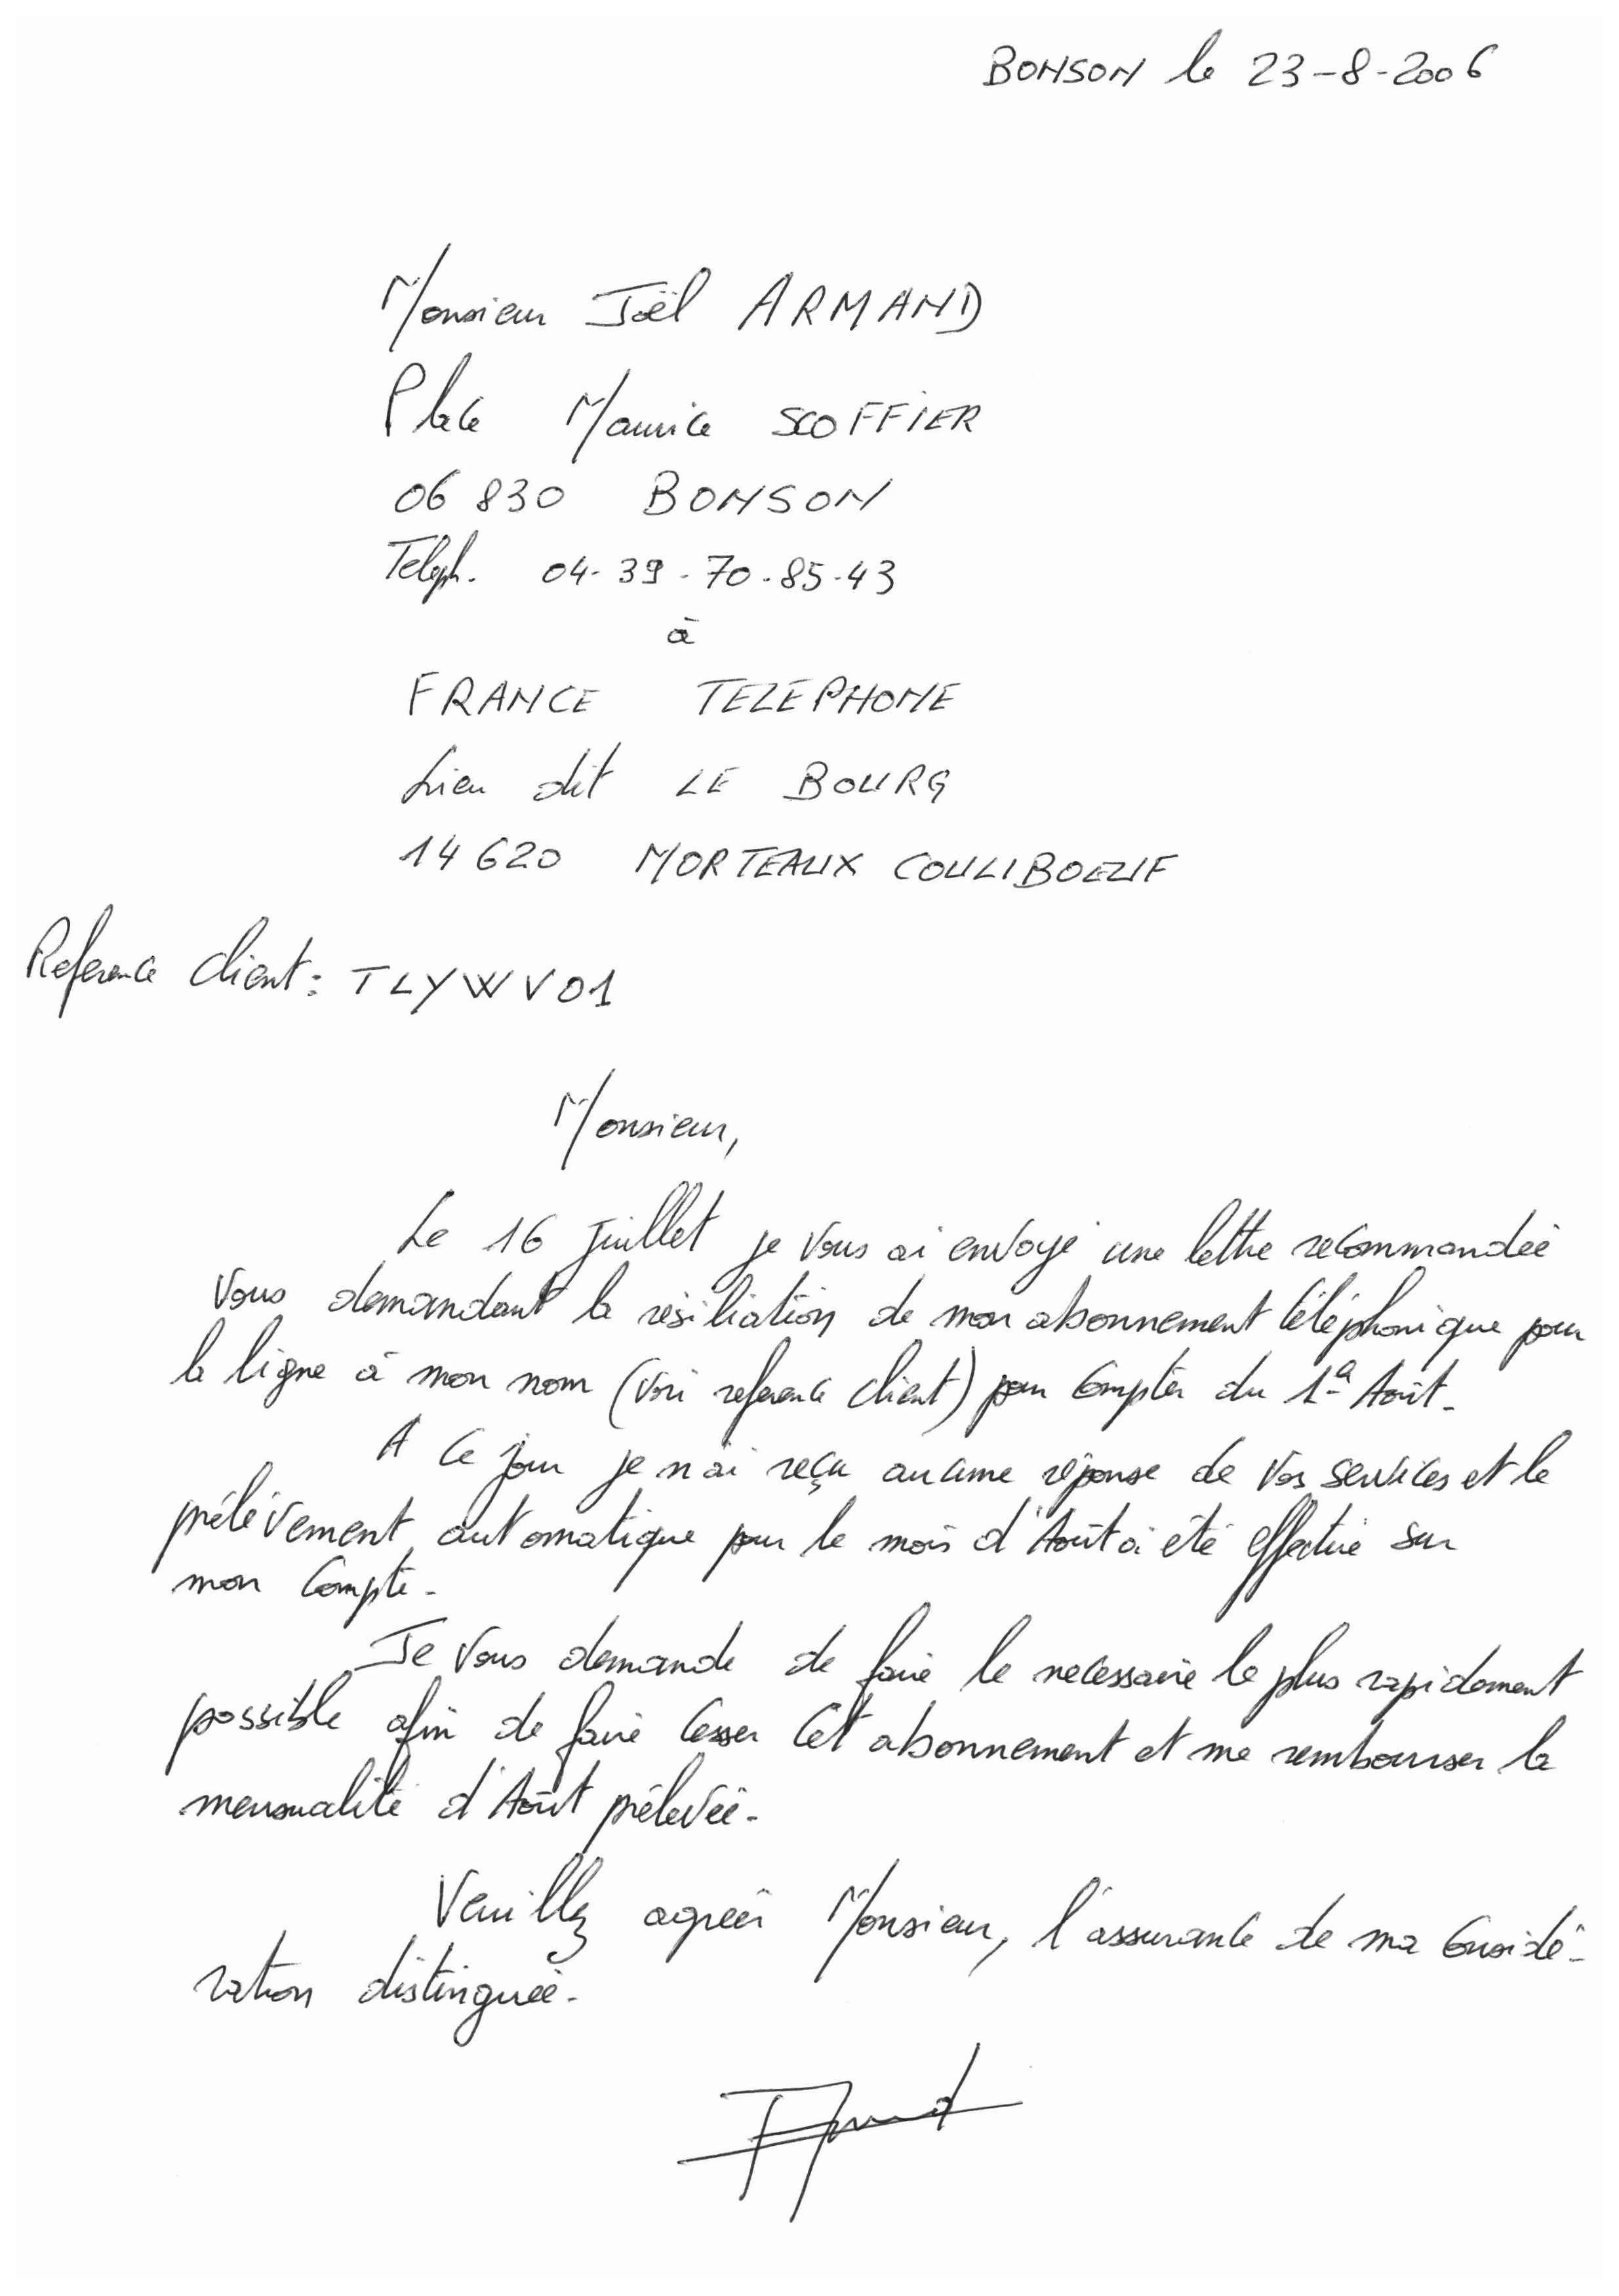 BONSON le 23-8-2006
Monsieur Joël ARMAND
Place Maurice SCOFFIER
06 830 BONSON
Teleph. 04-39-70-85-43
à
FRANCE TELEPHONE
Lieu dit LE BOURG
14 620 MORTEAUX COULIBOEUF
Reference client: TLYWV01
Monsieur,
Le 16 Juillet je vous ai envoyé une lettre recommandée
vous demandant la résiliation de mon abonnement téléphonique pour
la ligne à mon nom (voir reference client) pour compter du 1er Août.
A ce jour je n'ai reçu aucune réponse de vos services et le
prélèvement automatique pour le mois d'Août a été effectué sur
mon compte.
Je vous demande de faire le necessaire le plus rapidement
possible afin de faire cesser cet abonnement et me rembourser la
mensualité d'Août prélevée.
Veuillez agréer Monsieur, l'assurance de ma considé-
ration distinguée.